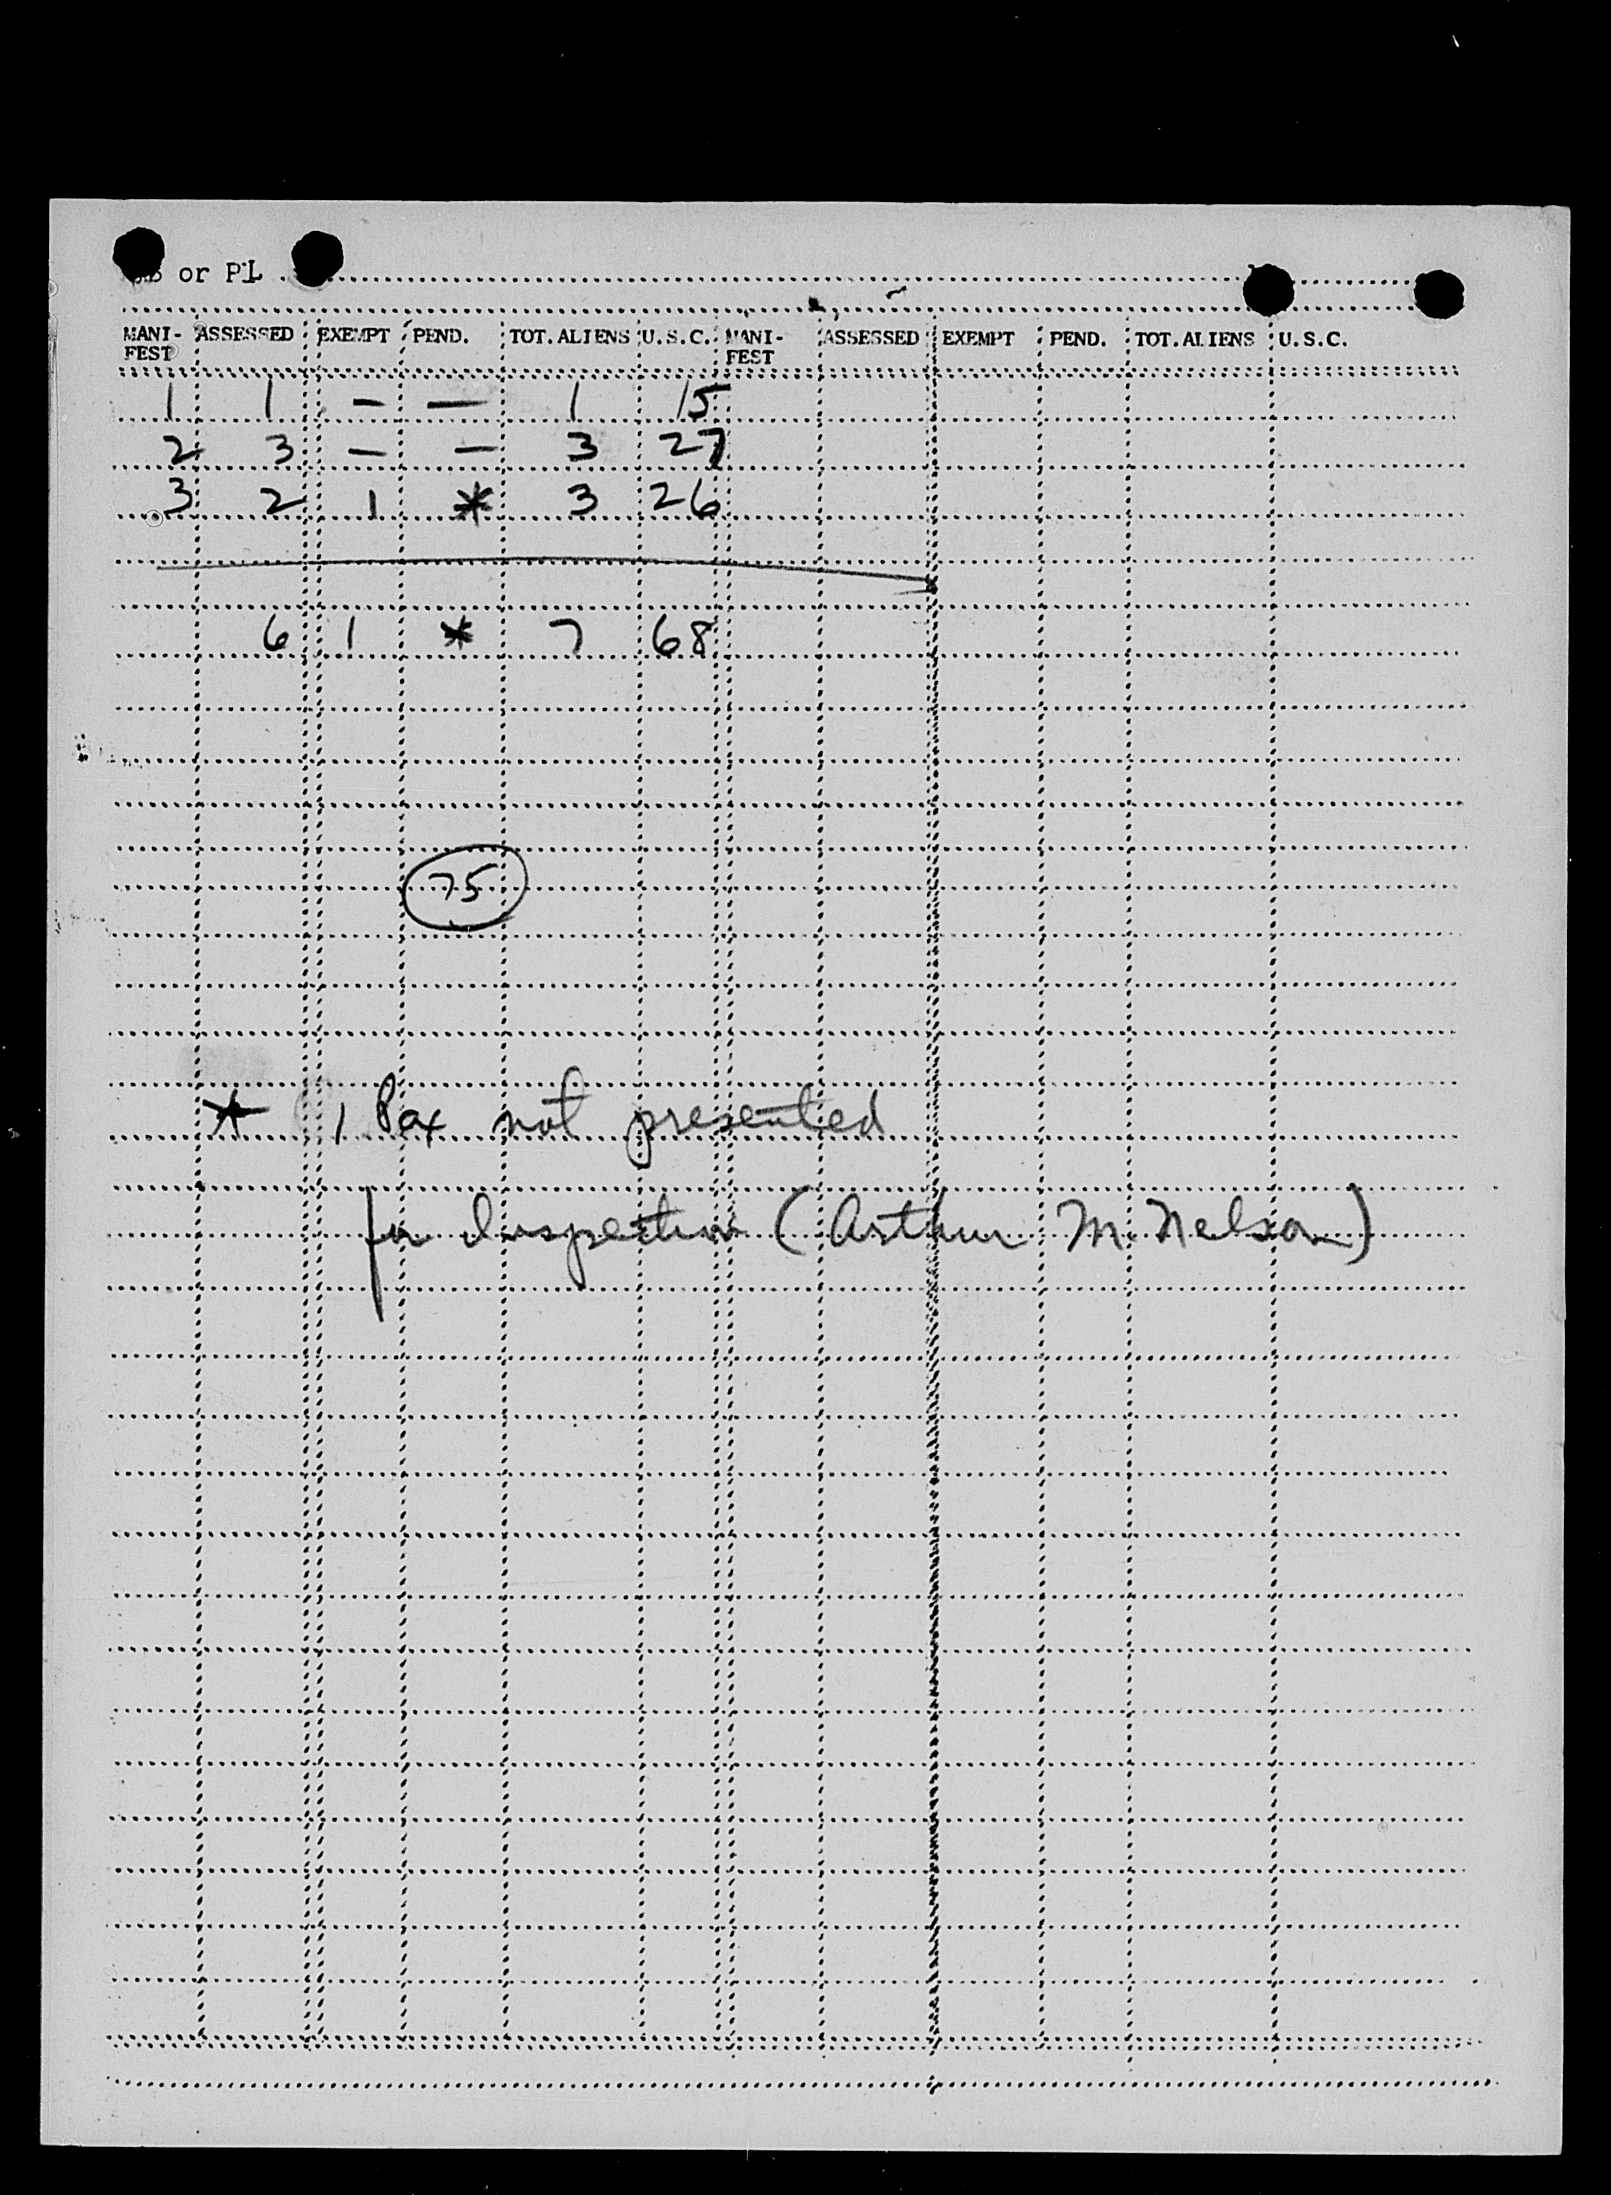 or PL
MANI- ASSESSED EXEMPT PEND. TOT. ALIENS U.S.C. MANI- ASSESSED EXEMPT PEND. TOT. ALIENS U.S.C.
FEST FEST
1 1 - - 1 15
2 3 - - 3 27
3 2 1 * 3 26
6 1 * 7 68
75
* 1 Pax not presented
for Inspection (Arthur M. Nelson)